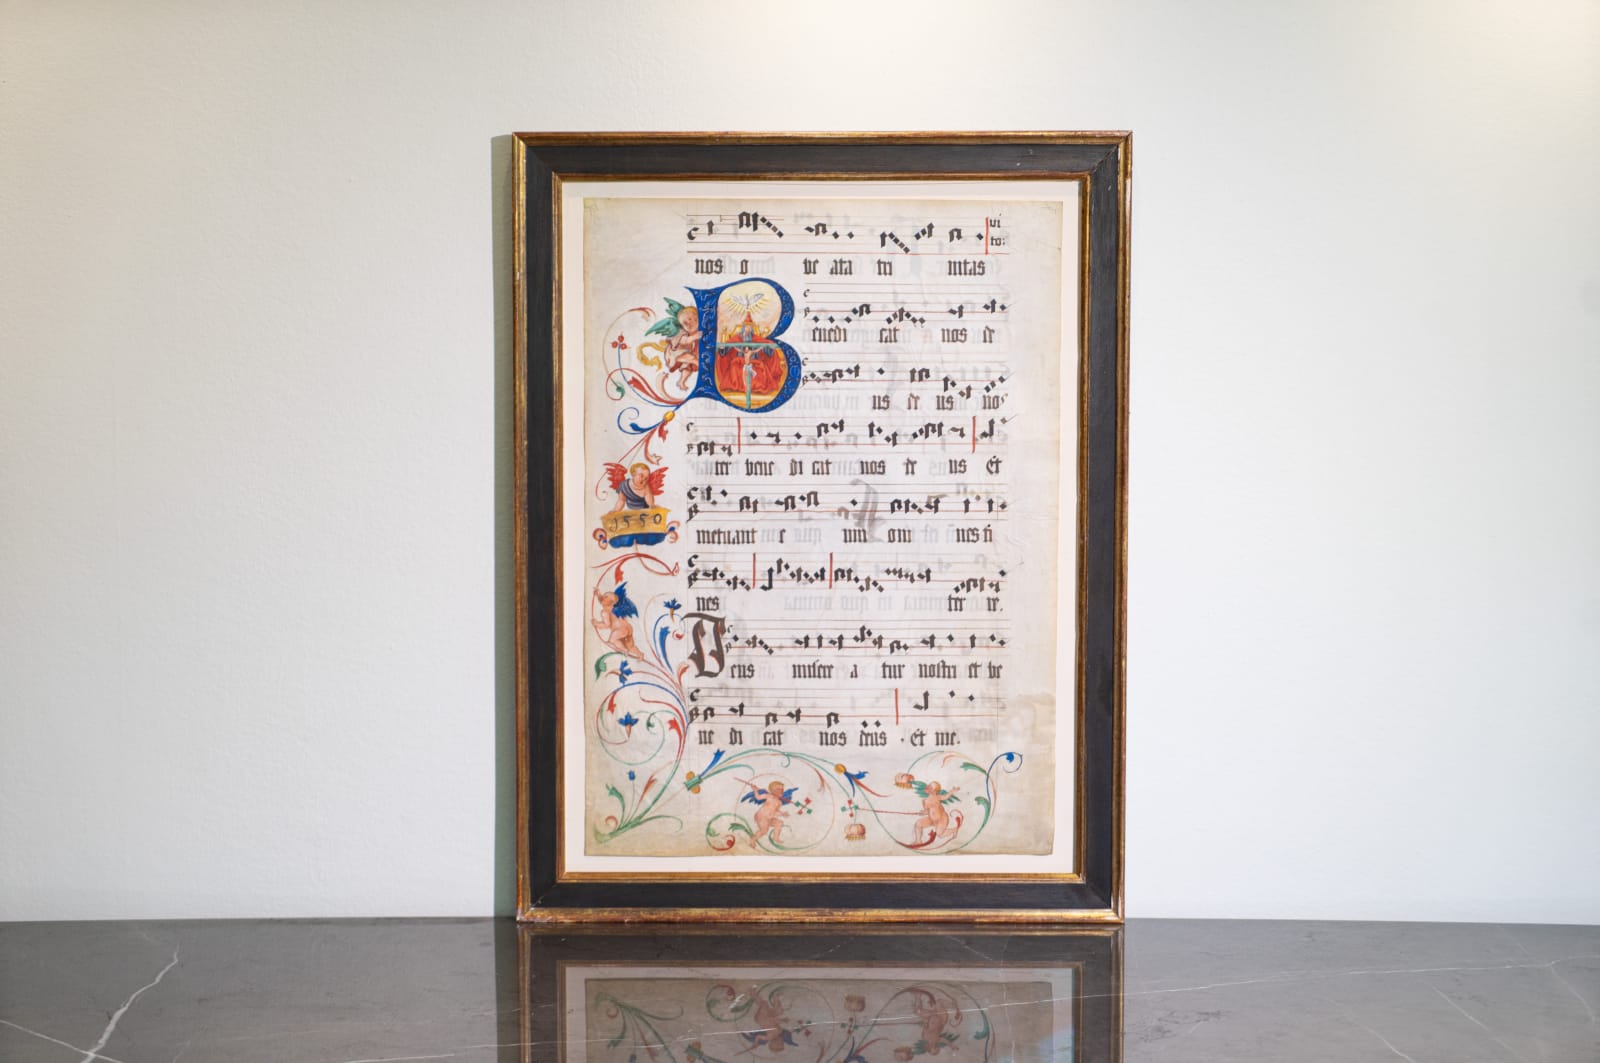 vi
nos o be ata tri nitas to:
Benedi cat nos de
us de us nos
ter bene di cat nos de us Et
1550
metuant e um om nes fi
nes ter re.
Deus misere a tur nostri et be
ne di cat nos deus . Et me.